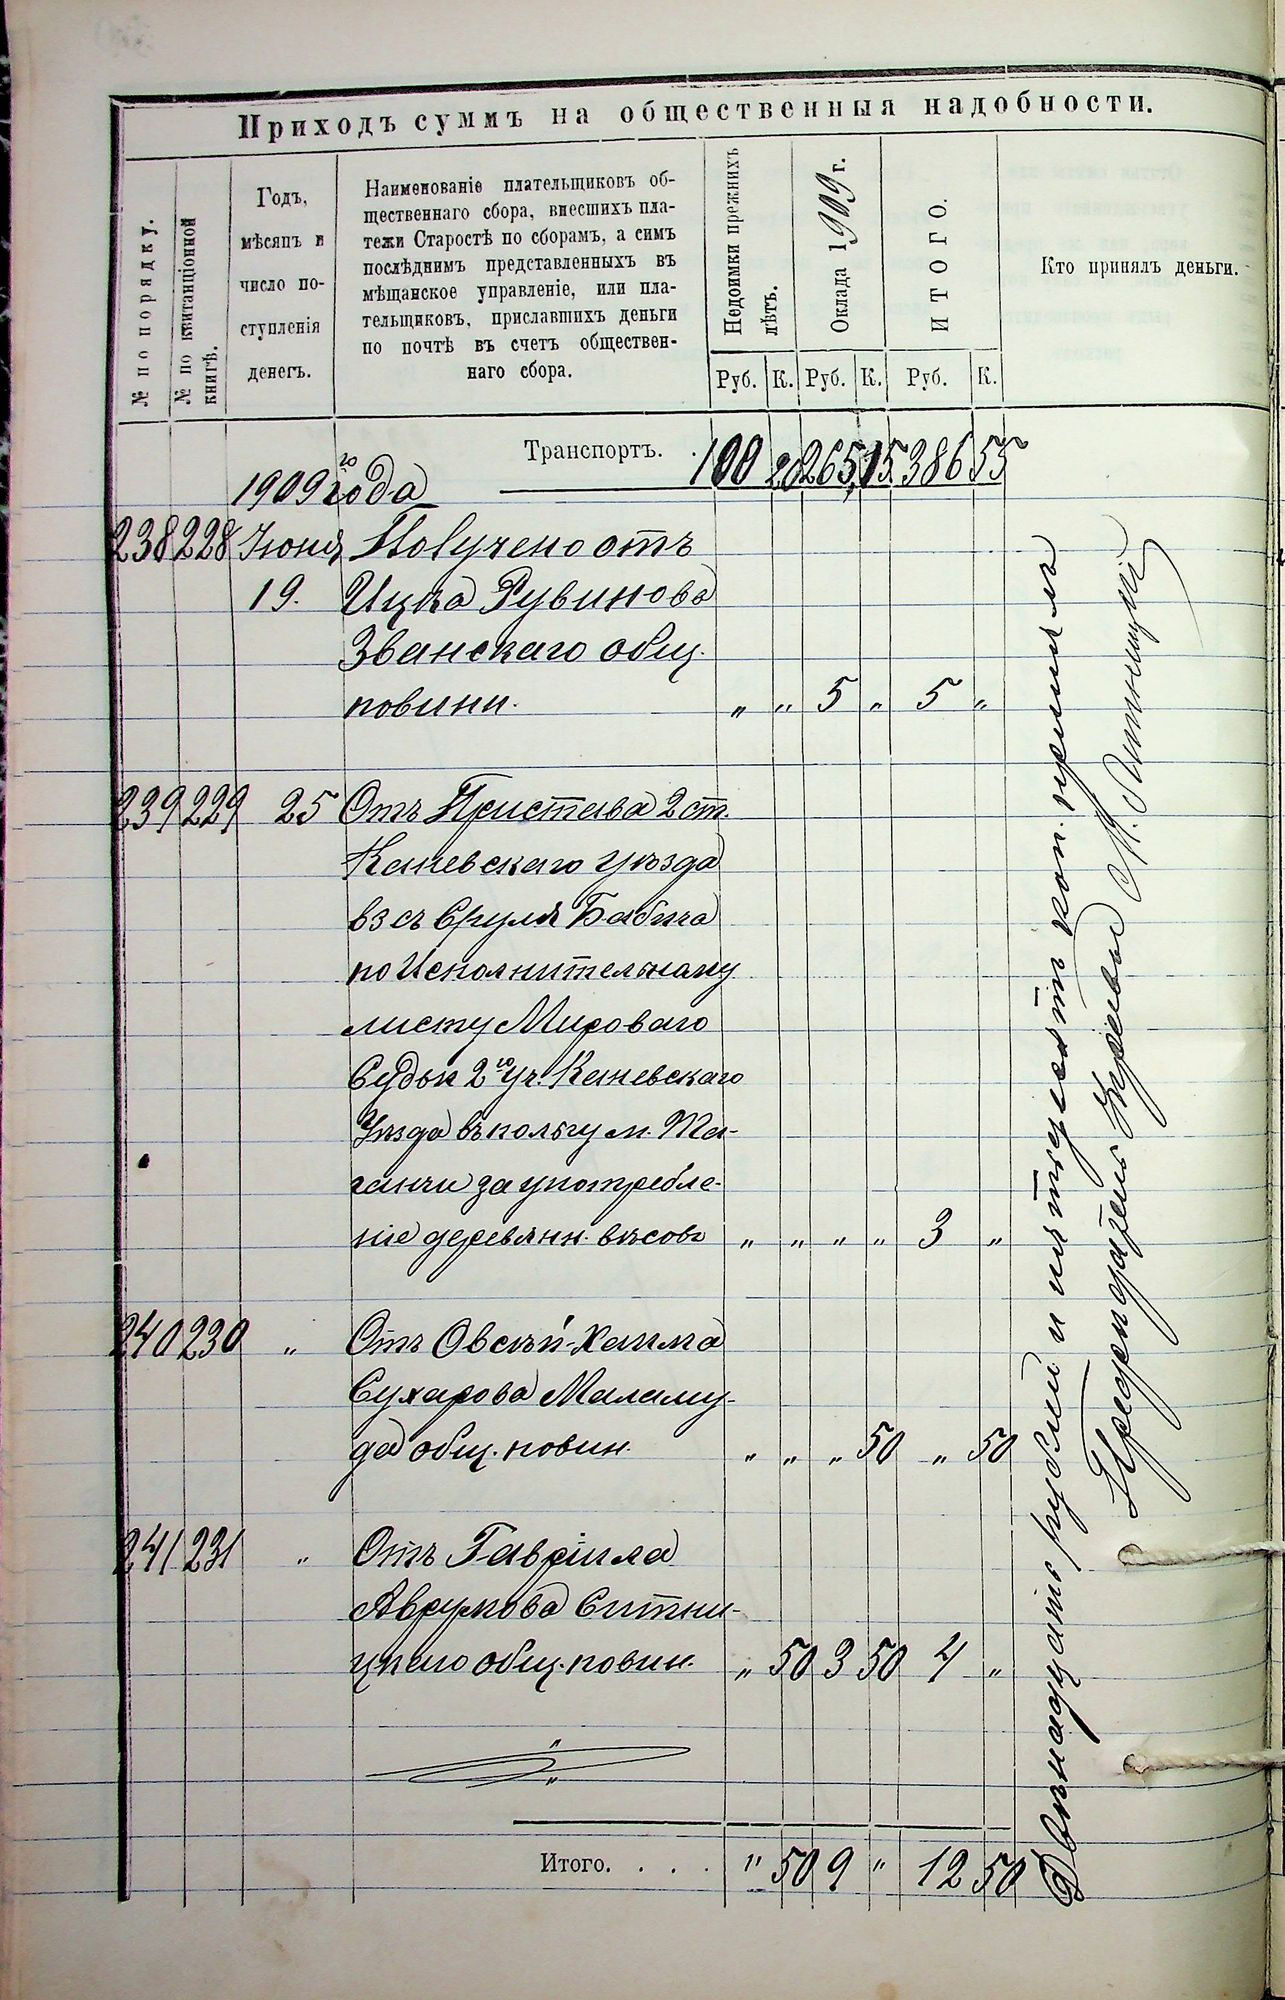 Приходъ суммъ на общественныя надобности.
№ по порядку.
№ по квитанціонной книгѣ.
Годъ,
мѣсяцъ и
число по-
ступленія
денегъ.
Наименованіе плательщиковъ об-
щественнаго сбора, внесшихъ пла-
тежи Старостѣ по сборамъ, а симъ
послѣднимъ представленныхъ въ
мѣщанское управленіе, или пла-
тельщиковъ, приславшихъ деньги
по почтѣ въ счетъ обществен-
наго сбора.
Недоимки прежнихъ лѣтъ.
Оклада 1909 г.
ИТОГО.
Кто принялъ деньги.
Руб. К. Руб. К. Руб. К.
Транспортъ. . 100 20 265 15 386 55
1909 го года
238 228 Іюня Получено отъ
19. Ицка Рувинова
Званскаго общ.
повинн. " " 5 " 5 "
239 229 25 Отъ Пристава 2 ст.
Каневскаго уѣзда
вз съ Сруля Бабича
по Исполнительному
листу Мироваго
Судьи 2го уч. Каневскаго
Уѣзда въ пользу м. Та-
ганчи за употребле-
ніе деревянн. вѣсовъ " " " " 3 "
240 230 " Отъ Овсѣй-Хаима
Сухарова Маламу-
да общ. повин. " " " 50 " 50
241 231 " Отъ Гавріила
Аврумова Ситни-
цкаго общ. повин. " 50 3 50 4 "
Итого. . . . " 50 9 " 12 50
Двѣнадцать рублей и пятьдесятъ коп. принялъ